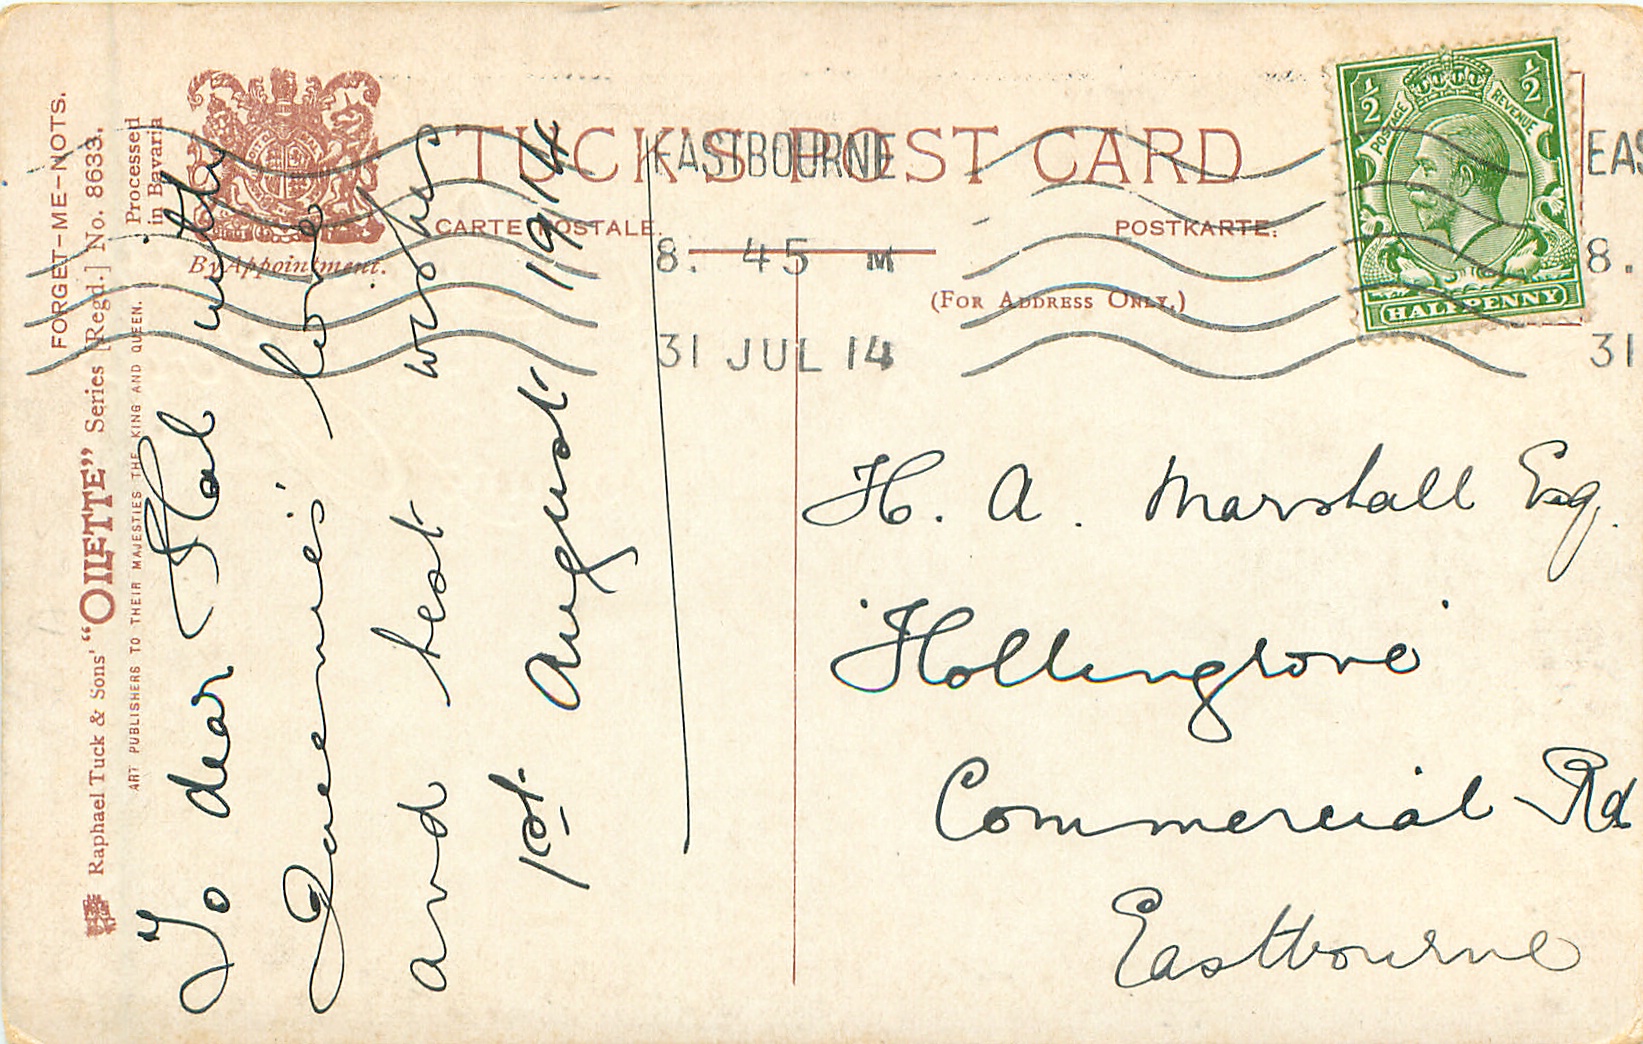 FORGET-ME-NOTS.
Raphael Tuck & Sons' "OILETTE" Series [Regd.] No. 8633.
ART PUBLISHERS TO THEIR MAJESTIES THE KING AND QUEEN.
Processed
in Bavaria
By Appointment.
TUCK'S POST CARD
CARTE POSTALE.
POSTKARTE.
(FOR ADDRESS ONLY.)
EASTBOURNE
8. 45 M
31 JUL 14
EAS
8.
31
½ ½
POSTAGE REVENUE
HALFPENNY
To dear Hal with
Queenies' love
and best wishes
1st August 1914
H. A. Marshall Esq.
'Hollingrove'
Commercial Rd
Eastbourne